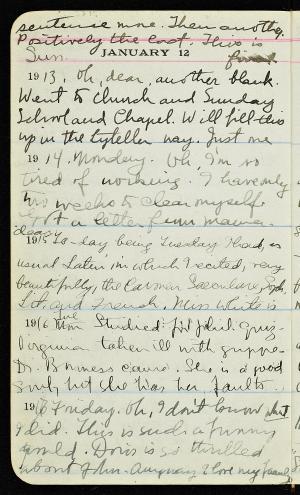 sentence more. Then another.
Positively the last. This is
final
JANUARY 12
Sun.
1913. Oh, dear, another blank.
Went to Church and Sunday
School and Chapel. Will fill this
up in the
way. Just me
1914. Monday. Oh, I'm so
tired of working. I have only
two weeks to clear myself.
Got a letter from mama.
1915 To-day being Tuesday I had, as
usual Latin, in which I recited, very
beautifully, the Carmen Saeculare, Soph.
Lit. and French. Miss White is
1916 Studied for phil. quiz.
Virginia taken ill with
Dr. B cause. She is a good
soul, but she has her faults.
19 Friday. Oh, I don't know what
I did. This is such a funny
world. Doris is so thrilled
about John. Anyway I love my family